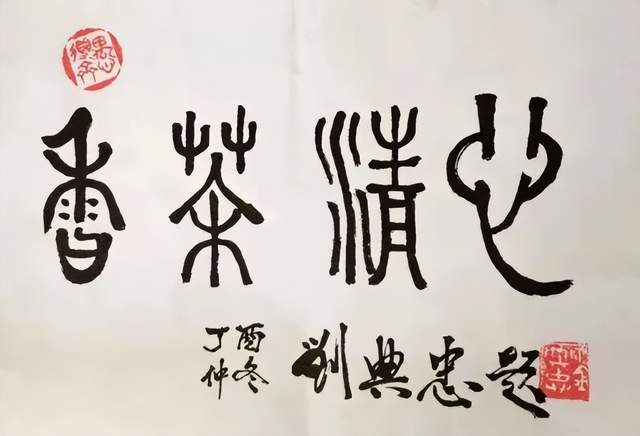 香茶清心
丁酉
仲冬
劉典忠題